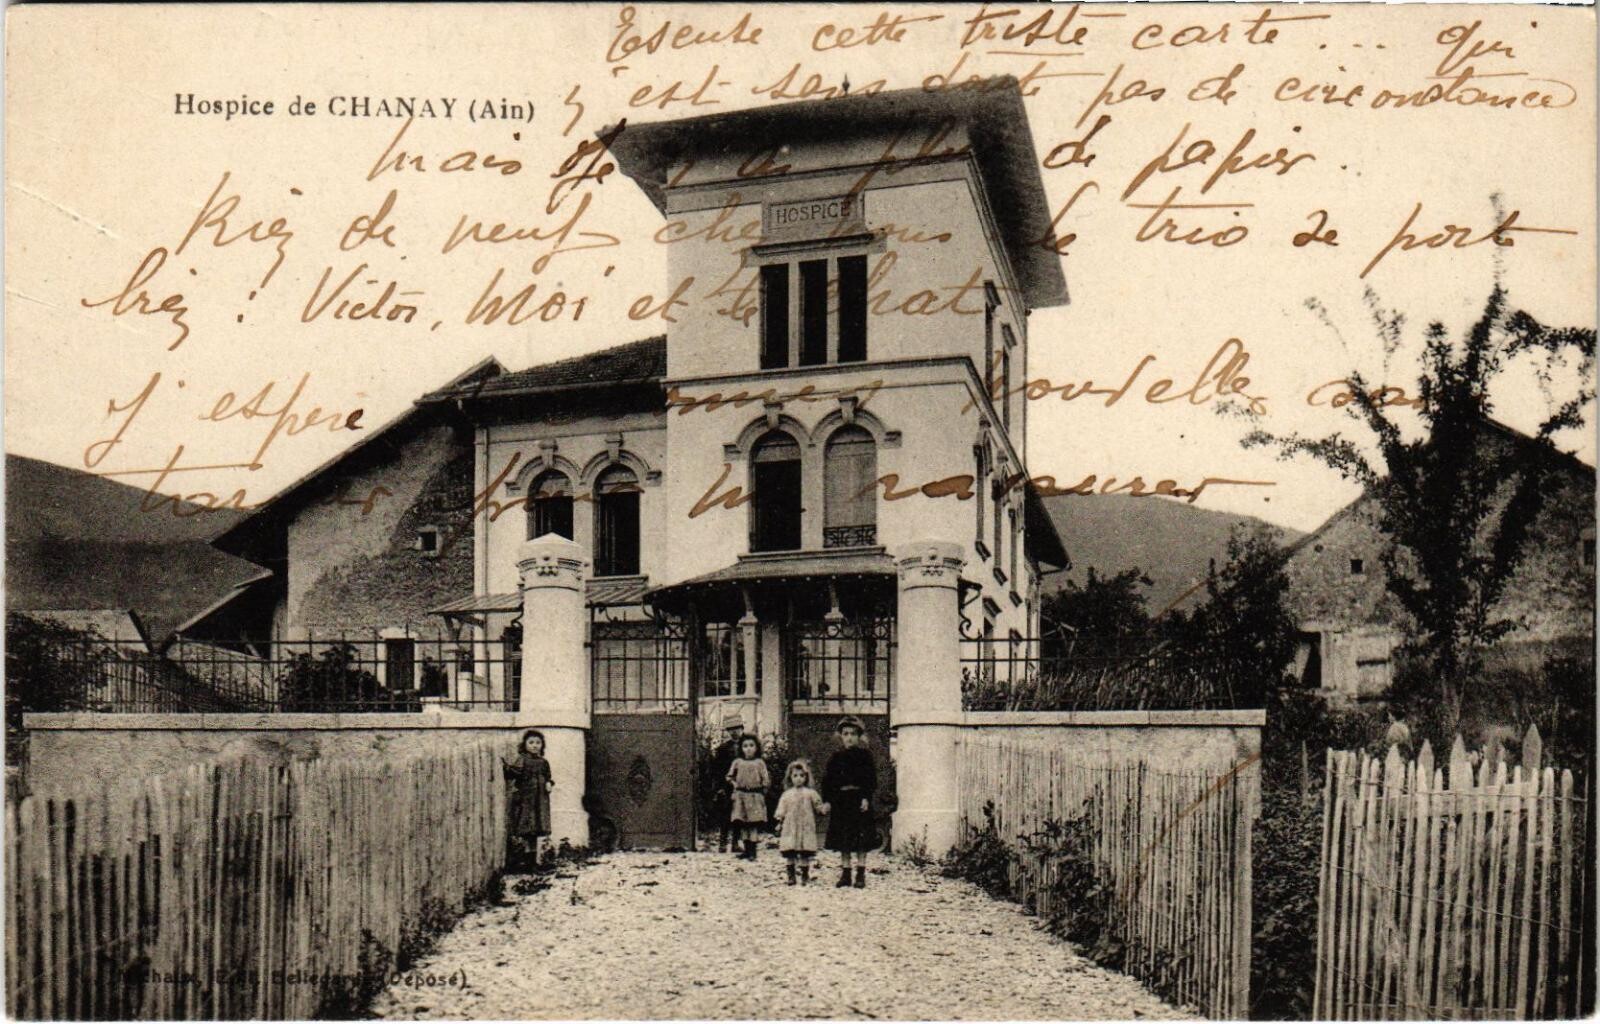 Escuse cette triste carte ... qui
n'est sans doute pas de circonstance
Hospice de CHANAY (Ain)
mais je n'ai plus de papier.
Riez de neuf chez nous le trio se porte
HOSPICE
biez : Victor, Moi et le chat.
J'espère bonnes nouvelles sans
tarder pour m rassurer.
Michaux, Edit. Bellegarde (Déposé)